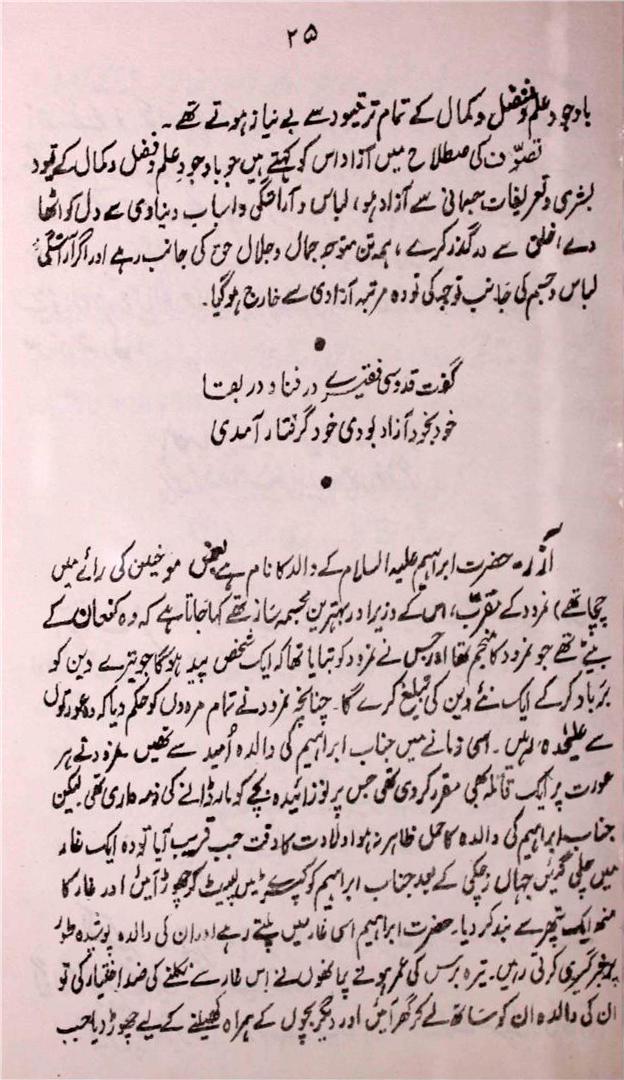 ۲۵
باوجود علم و فضل و کمال کے تمام تر قیود سے بے نیاز ہوتے تھے۔
تصوّف کی اصطلاح میں آزاد اس کو کہتے ہیں جو باوجود علم و فضل و کمال کے قیود
بشری و تعریفات جسمانی سے آزاد ہو، لباس و آراستگی و اسباب دنیاوی سے دل کو اٹھا
دے، خلق سے درگذر کرے، ہمہ تن متوجہ جمال و جلال حق کی جانب رہے اور اگر آراستگی
لباس و جسم کی جانب توجہ کی تو وہ مرتبہ آزادی سے خارج ہو گیا۔
گفت قدوسی فقیرے در فنا و در بقا
خود بخود آزاد بودی خود گرفتار آمدی
آزر۔ حضرت ابراہیم علیہ السلام کے والد کا نام ہے بعض مورخین کی رائے میں
چچا تھے) نمرود کے مقرب، اس کے وزیر اور بہترین مجسمہ ساز تھے کہا جاتا ہے کہ وہ کنعان کے
بیٹے تھے جو نمرود کا منجم تھا اور جس نے نمرود کو بتایا تھا کہ ایک شخص پیدا ہوگا جو تیرے دین کو
برباد کر کے ایک نئے دین کی تبلیغ کرے گا۔ چنانچہ نمرود نے تمام مردوں کو حکم دیا کہ وہ عورتوں
سے علیحدہ رہیں۔ اسی زمانے میں جناب ابراہیم کی والدہ اُمید سے تھیں۔ نمرود نے ہر
عورت پر ایک قابلہ بھی مقرر کر دی تھی جس پر نوزائیدہ بچے کو مار ڈالنے کی ذمہ داری تھی لیکن
جناب ابراہیم کی والدہ کا حمل ظاہر نہ ہوا ولادت کا وقت جب قریب آیا تو وہ ایک غار
میں چلی گئیں جہاں زچگی کے بعد جناب ابراہیم کو کپڑے میں لپیٹ کر چھوڑ آئیں اور غار کا
منھ ایک پتھر سے بند کر دیا۔ حضرت ابراہیم اسی غار میں پلتے رہے اور ان کی والدہ پوشیدہ طور
پر خبر گیری کرتی رہیں۔ تیرہ برس کی عمر ہونے پر انھوں نے اس غار سے نکلنے کی ضد اختیار کی تو
ان کی والدہ ان کو ساتھ لے کر گھر آئیں اور دیگر بچوں کے ہمراہ کھیلنے کے لیے چھوڑ دیا جب